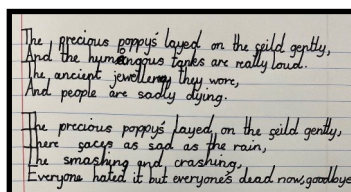 The precious poppy's layed on the feild gently,
And the humongous tanks are really loud.
The ancient jewellery they wore,
And people are sadly dying.
The precious poppy's layed, on the feild gently,
There faces as sad as the rain,
The smashing and crashing,
Everyone hated it but everyone's dead now, goodbye